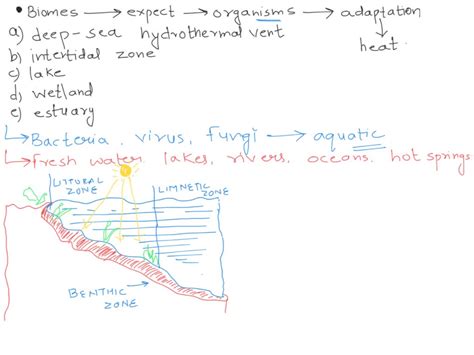 • Biomes → expect → organisms → adaptation
heat.
a) deep-sea hydrothermal vent
b) intertidal zone
c) lake
d) wetland
e) estuary
↳ Bacteria, virus, fungi → aquatic
↳ Fresh water, lakes, rivers, oceans, hot springs
LITTORAL ZONE
LIMNETIC ZONE
BENTHIC ZONE